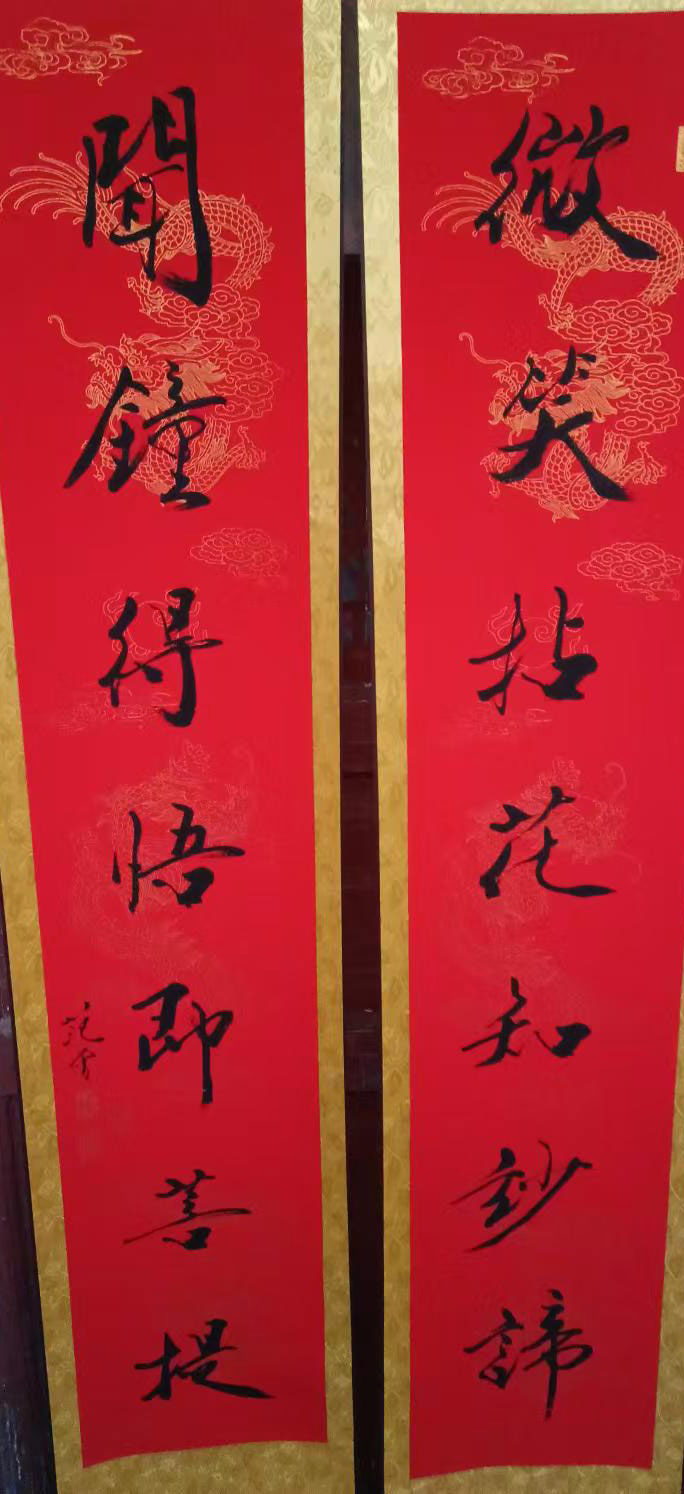 微笑拈花知玅諦
聞鐘得悟即菩提